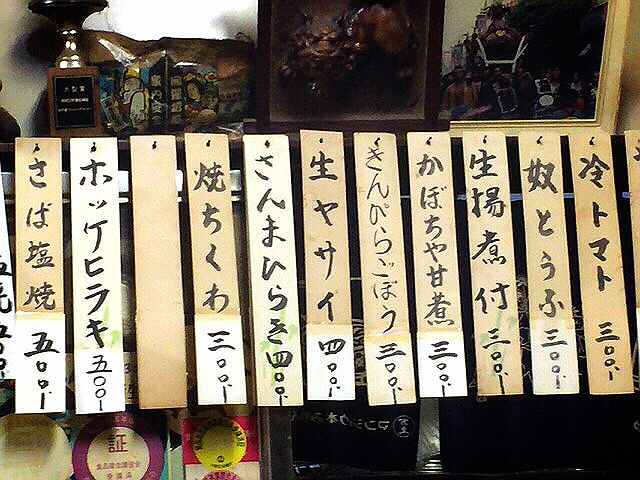 冷トマト 三〇〇
奴とうふ 三〇〇
生揚煮付 三〇〇
かぼちゃ甘煮 三〇〇
きんぴらごぼう 三〇〇
生ヤサイ 四〇〇
さんまひらき 四〇〇
焼ちくわ 三〇〇
ホッケヒラキ 五〇〇
さば塩焼 五〇〇
五〇〇
証